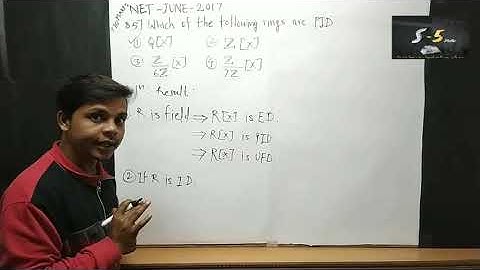 NET-JUNE-2017
85] Which of the following rings are PID
① Q[x] ② Z[x]
③ Z/6Z [x] ④ Z/7Z [x]
1st Recall:
R is field ⇒ R[x] is ED
⇒ R[x] is PID
⇒ R[x] is UFD
② If R is ID
S-5